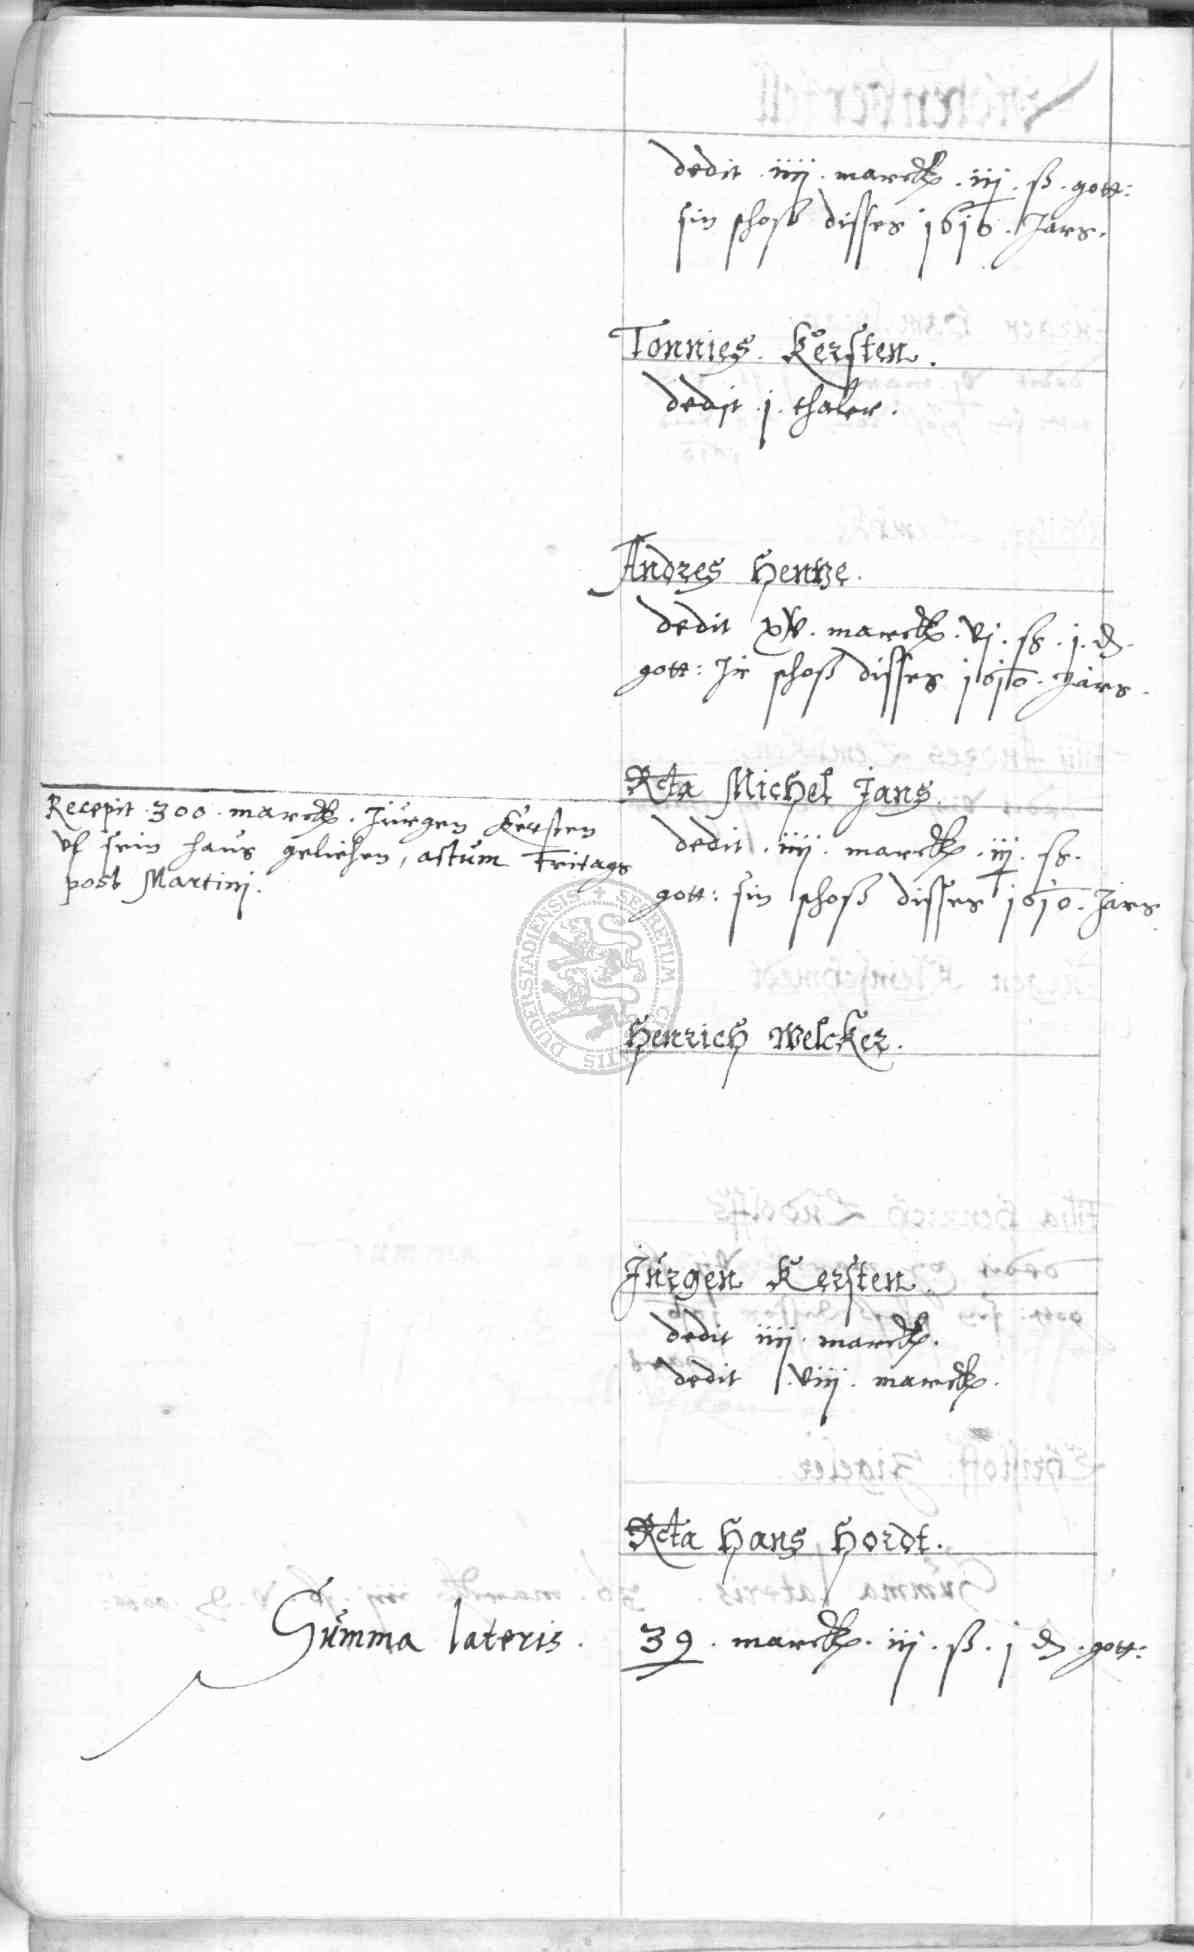 dedit . iiij . marck . iij . ß . gott:
sin schoß disses 1616 . Jars .
Tonnies . Kersten .
dedit . j . thaler .
Andres Hentze .
dedit xv . marck . vj . ß . j . d .
gott: Jr schoß disses 1616 . Jars .
Rcta Michel Jans
Recepit . 300 . marck . Jürgen Kersten
vf sein haus geliehen, actum Freitags
post Martinj .
dedit . iiij . marck . iij . ß .
gott: sin schoß disses 1616 . Jars .
SECRETUM CIVITATIS DUDERSTADIENSIS
Henrich Welcker .
Jürgen Kersten .
dedit iiij . marck .
dedit . viij . marck .
Rcta Hans Hordt .
Summa lateris . 39 . marck . iij . ß . j d . gott: